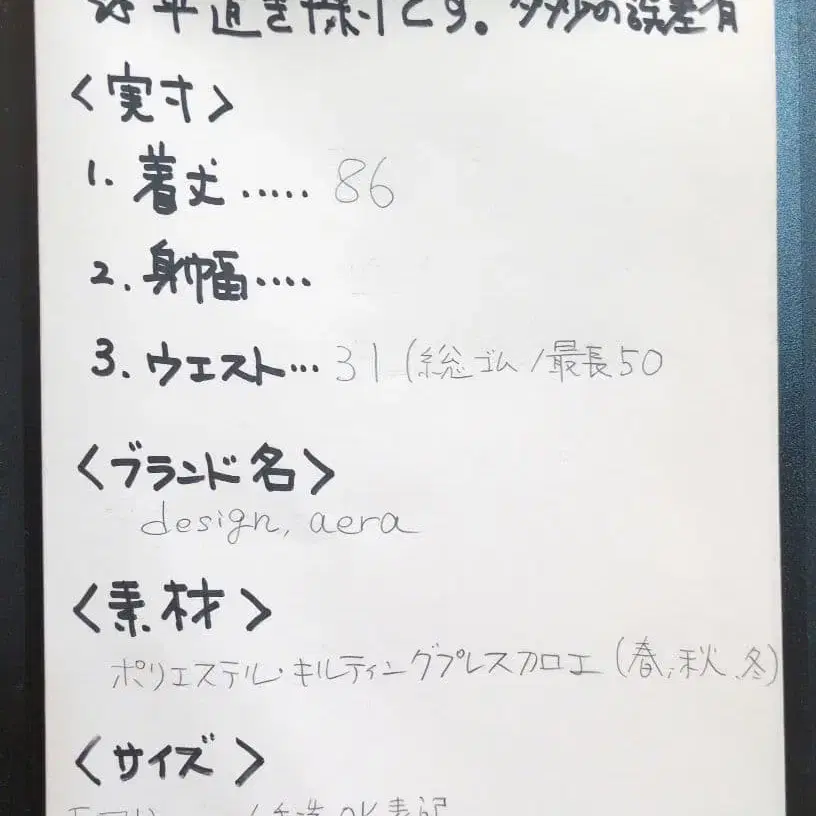 ☆平置き採寸です。多少の誤差有
〈実寸〉
1. 着丈..... 86
2. 身幅....
3. ウエスト... 31 (総ゴム/最長50
〈ブランド名〉
design, aera
〈素材〉
ポリエステル・キルティングプレス加工(春、秋、冬)
〈サイズ〉